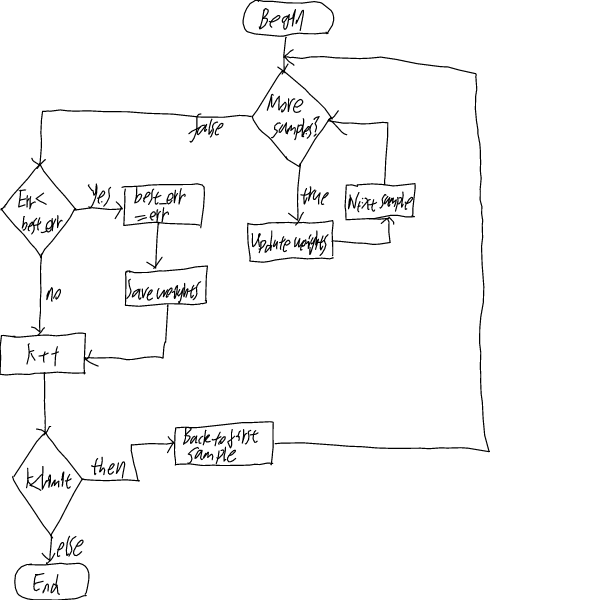 Begin
More
samples?
false
true
Next sample
Update weights
Err<
best_err
yes
best_err
=err
Save weights
no
k++
k<limit
then
Back to first
sample
else
End